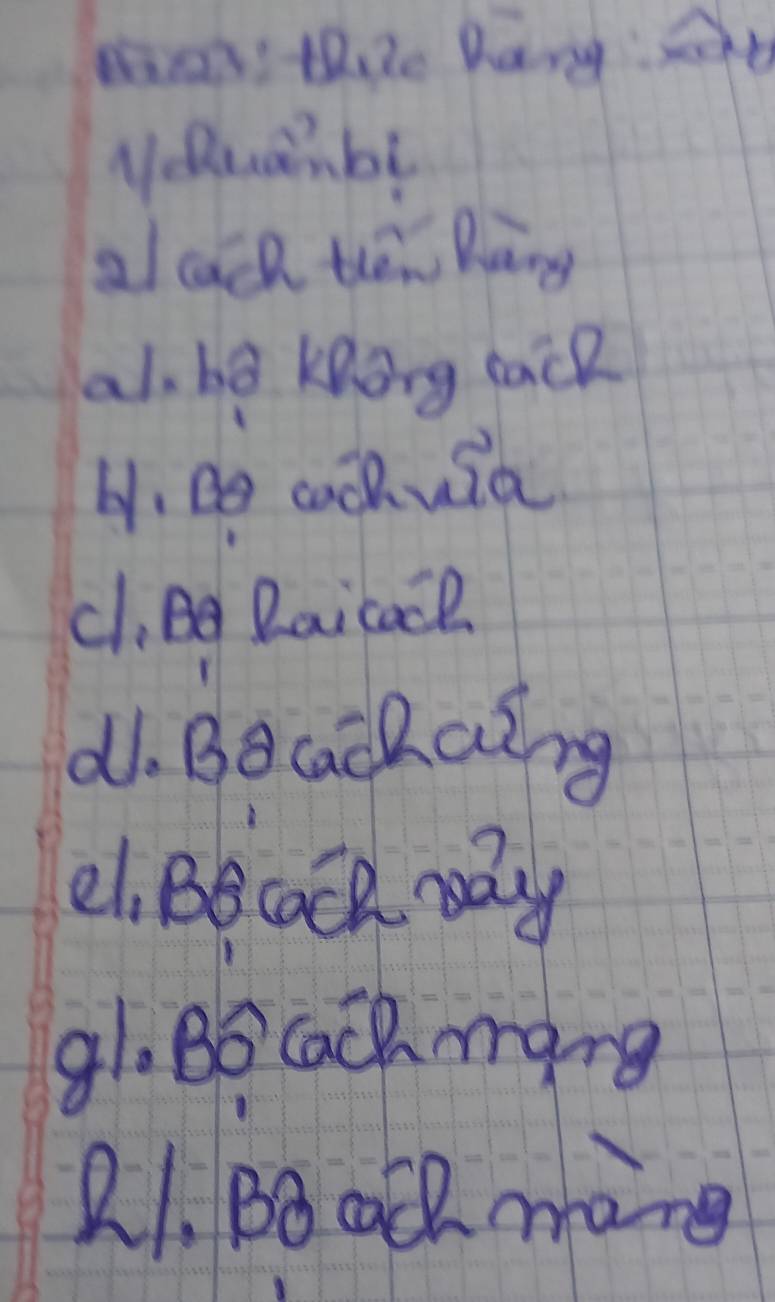 thực hàng: xây
1/ chuẩn bị
2/ cách tiến hàng
a/. bộ không cách
b/. Bộ cách nữa
c/. Bộ hai cách
d/. Bộ cách cứng
e/. Bộ cách vảy
g/. Bộ cách mạng
h/. Bộ cách màng